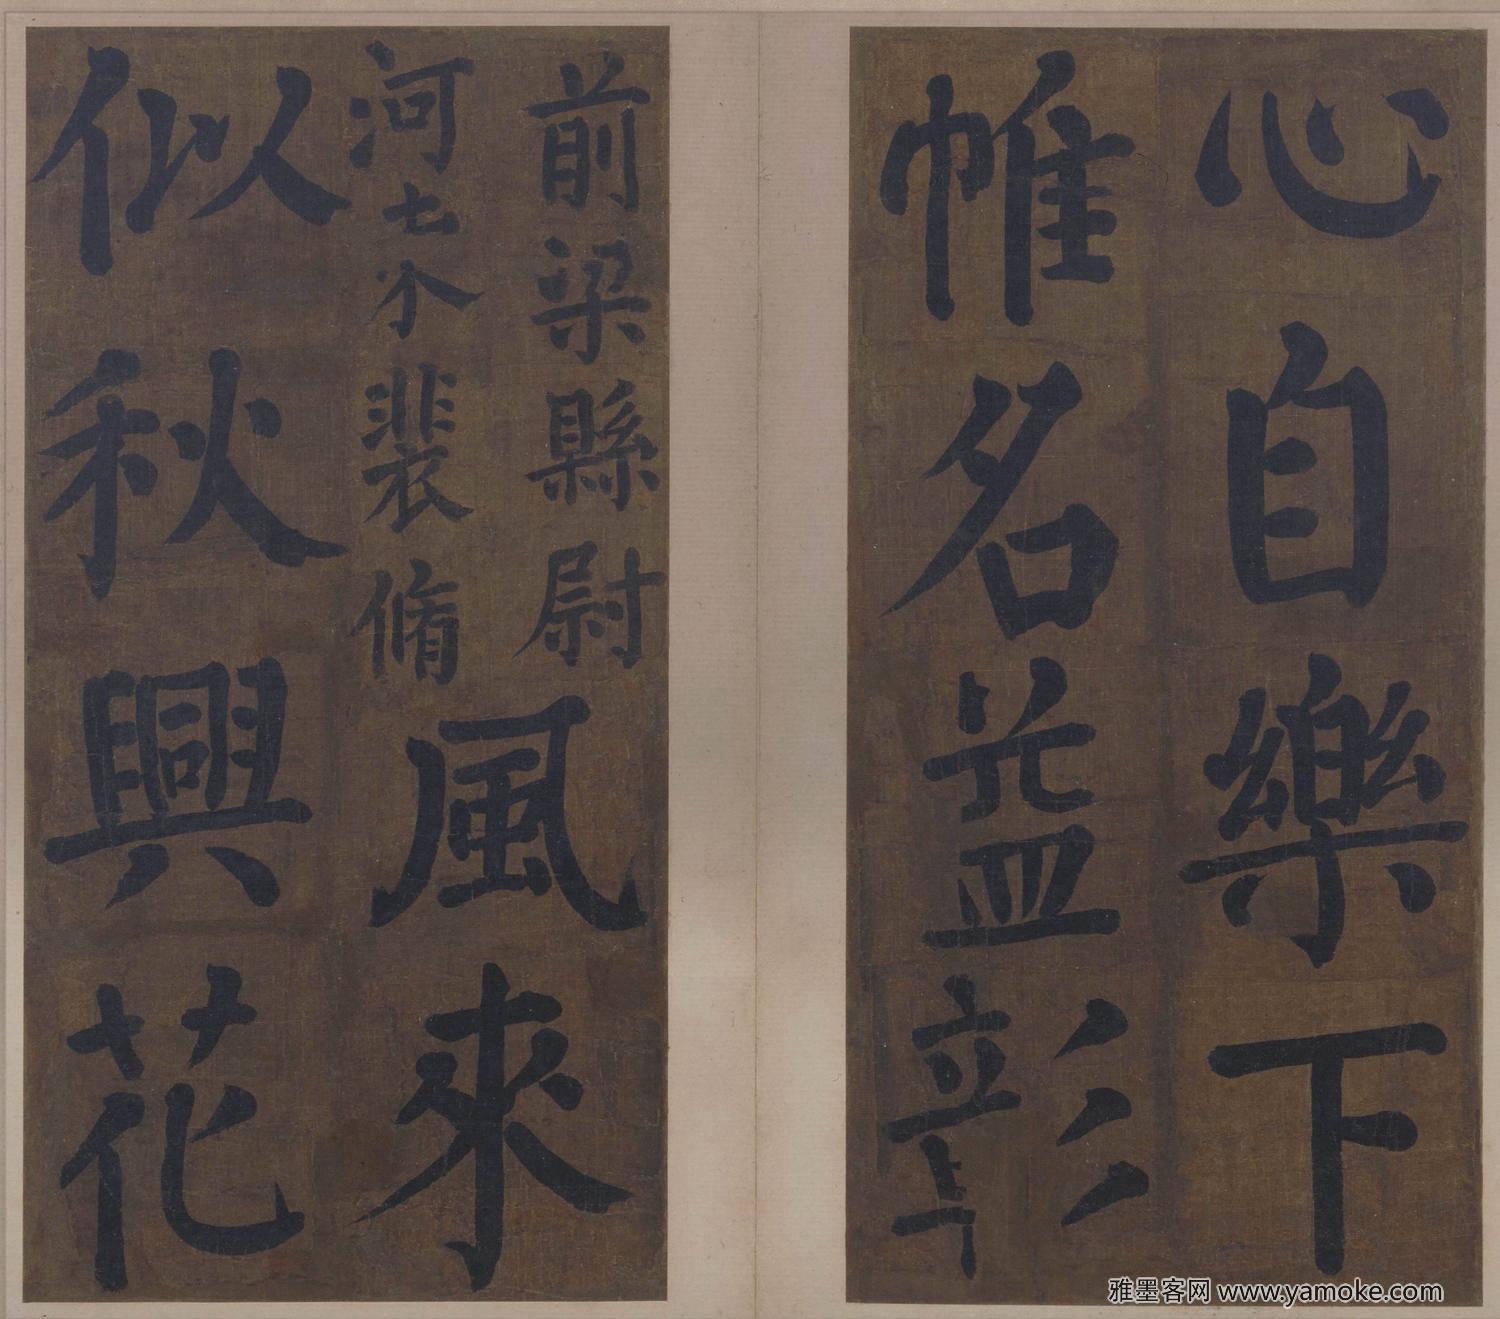 心自樂下
帷名益彰
前梁縣尉
河
裴脩
風來
似秋興花
雅墨客网 www.yamoke.com